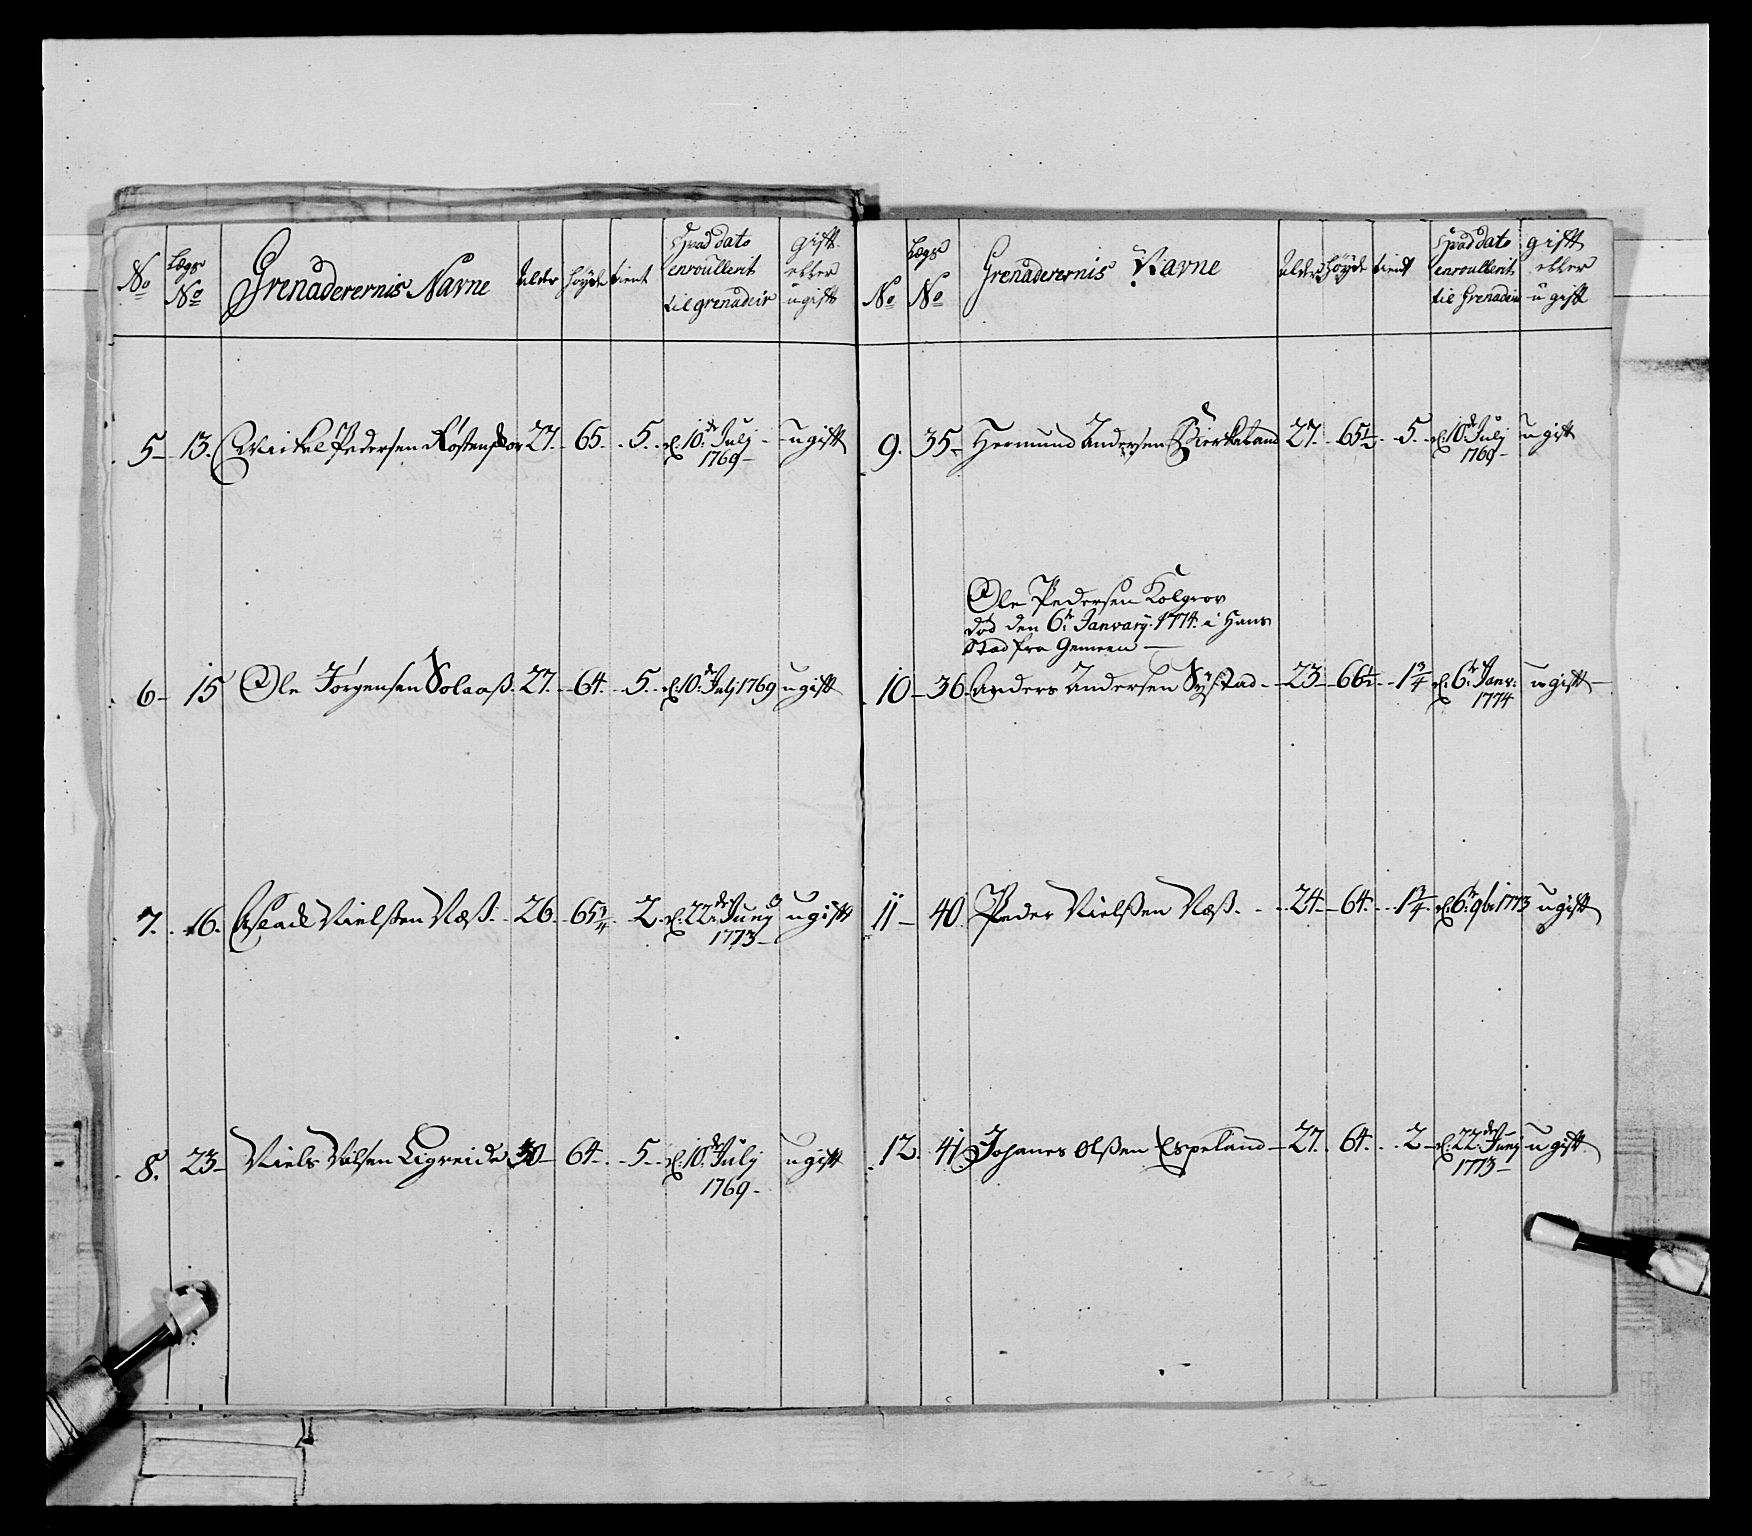 No
Lægs No
Grenaderernis Navne
alder
höyde
tient
Hvad dato enroullerit til grenadeir
gift eller ugift
5 – 13. Mickel Pedersen 27. 65. 5. d: 10de Julj 1769 – ugift
6 – 15 Ole Jørgensen Solaas. 27. 64. 5. d: 10de Julj 1769 ugift
7. 16. Aslack Nielssen Næss. 26. 65 3/4 2. d: 22de Junj 1773 – ugift
8. 23 – Niels Nilsen Ligreide 30 – 64 – 5. d: 10de Julj 1769 – ugift
No
Lægs No
Grenaderernis Navne
alder
höyde
tient
Hvad dato enroullerit til Grenadeir
gift eller ugift
9. 35 – Hermund Andersen Bierkeland 27. 65 1/2 5. d: 10de Julj 1769 – ugift
Ole Pedersen Kolgrov
død den 6te Januarij 1774. i Hans
Stad fra Gemeen –
10 – 36 Anders Andersen Systad – 23 – 66 1/2 1 3/4 d: 6te Janv: 1774 ugift –
11 – 40 Peder Nielssen Næss. 24. 64. 1 3/4 d: 6te 9br 1773 ugift
12. 41 Johanes Olssen Espeland – 27. 64. 2 – d: 22de Junj 1773 – ugift